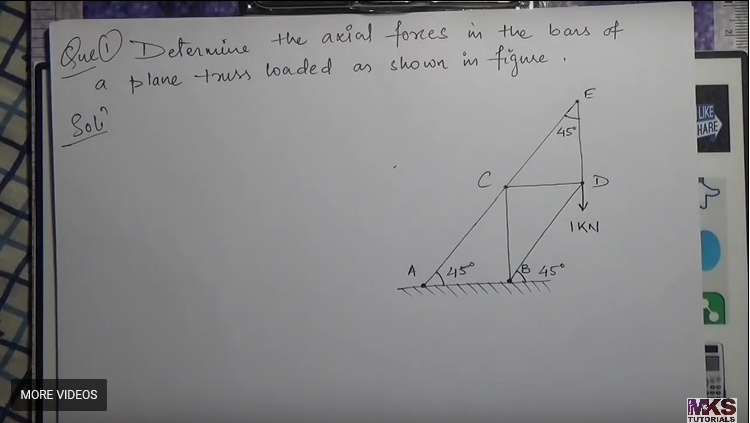 Que ① Determine the axial forces in the bars of
a plane truss loaded as shown in figure.
Solⁿ
E
45°
C
D
1KN
A
45°
B
45°
LIKE
SHARE
MORE VIDEOS
MKS
TUTORIALS